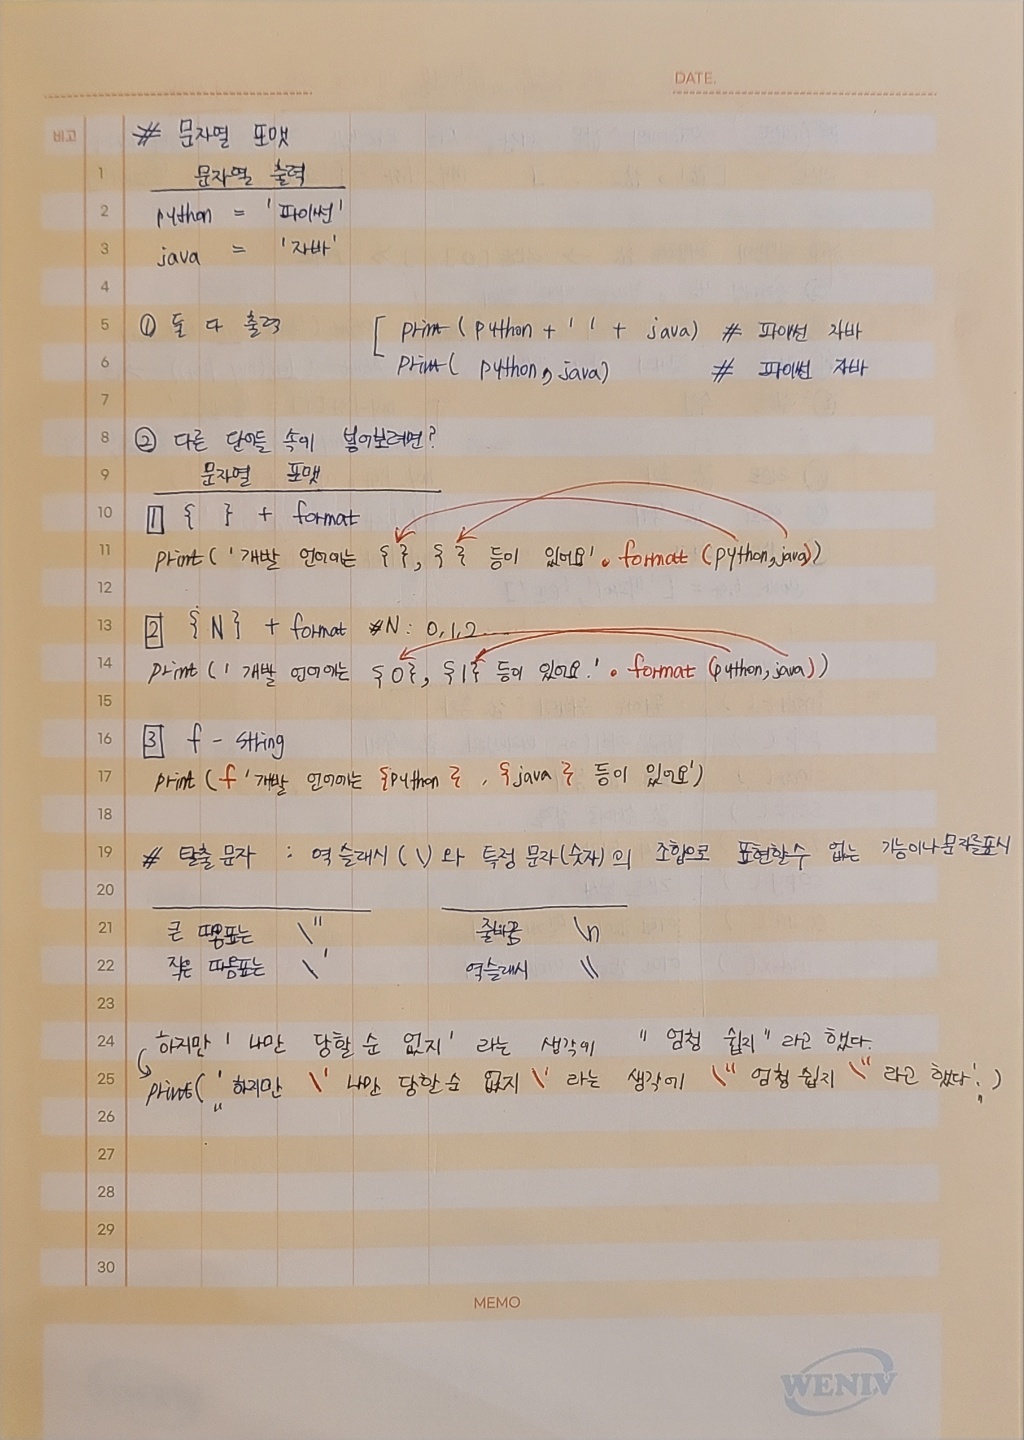 DATE.
비고
# 문자열 포맷
1 문자열 출력
2 python = '파이썬'
3 java = '자바'
4
5 ① 둘 다 출력 [ print(python + ' ' + java) # 파이썬 자바
6 print( python, java) # 파이썬 자바
7
8 ② 다른 단어들 속에 넣어보려면?
9 문자열 포맷
10 1 { } + format
11 print('개발 언어에는 { }, { } 등이 있어요'.format(python, java))
12
13 2 {N} + format #N : 0, 1, 2 ...
14 print('개발 언어에는 {0}, {1} 등이 있어요.'.format(python, java))
15
16 3 f - string
17 print(f'개발 언어에는 {python}, {java} 등이 있어요')
18
19 # 탈출 문자 : 역슬래시(\)와 특정 문자(숫자)의 조합으로 표현할 수 없는 기능이나 문자를 표시
20
21 큰 따옴표는 \" 줄바꿈 \n
22 작은 따옴표는 \' 역슬래시 \\
23
24 하지만 ' 나만 당할 순 없지' 라는 생각에 " 엄청 쉽지" 라고 했다.
25 print(' 하지만 \' 나만 당할 순 없지 \' 라는 생각에 \" 엄청 쉽지 \" 라고 했다'. )
" "
26
27
28
29
30
MEMO
WENIV